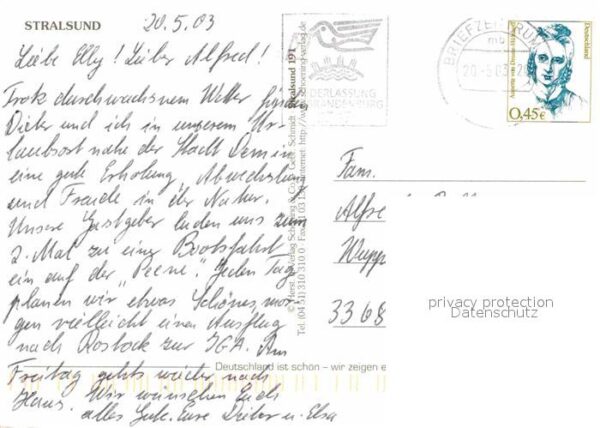 STRALSUND
20.5.03
Liebe Elly! Lieber Alfred!
Trotz durchwachsnem Wetter finden
Dieter und ich in unserem Ur-
laubsort nahe der Stadt Demmin
eine gute Erholung, Abwechslung
und Freude in der Natur.
Unsere Gastgeber luden uns zum
2. Mal zu einer Bootsfahrt
ein auf der "Peene". Jeden Tag
planen wir etwas Schönes, mor-
gen vielleicht einen Ausflug
nach Rostock zur IGA. Am
Freitag geht's wieder nach
Haus. Wir wünschen Euch
alles Gute. Eure Dieter u. Elsa
Stralsund 191
© Verlag Schöning & Co + Gebr. Schmidt
Tel. (04 51) 310 31 0 Internet: http://www.schoening-verlag.de
Deutschland ist schön – wir zeigen e
NIEDERLASSUNG
BRANDENBURG
BRIEFZENTRUM
20.-5.03
Deutschland
Annette von Droste-Hülshoff
0,45€
Fam.
Alfre
Wupp
3368
privacy protection
Datenschutz